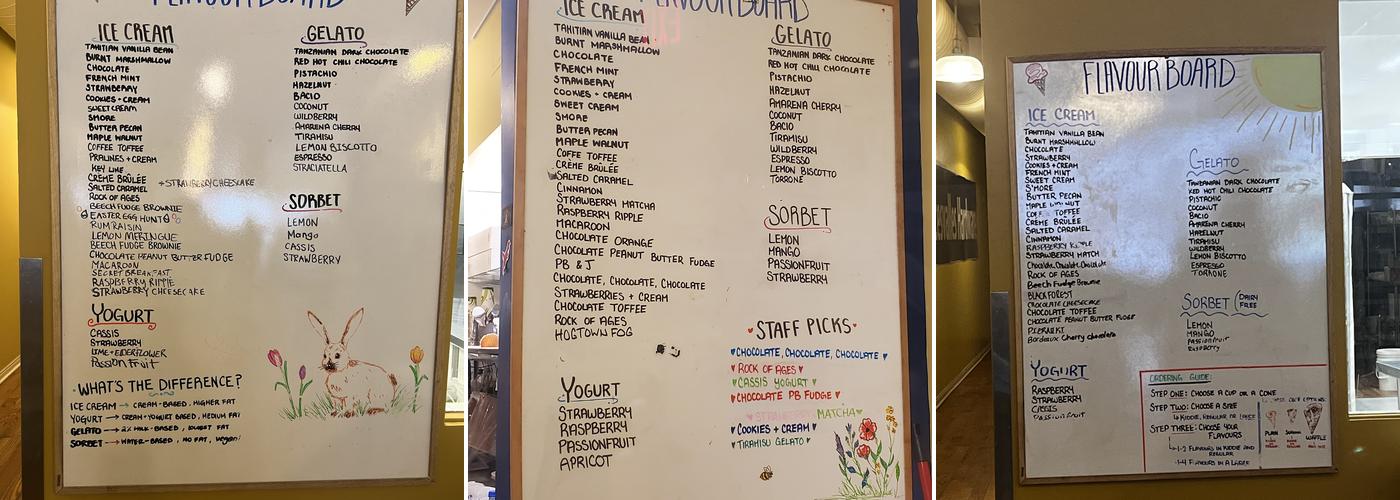 FLAVOUR BOARD
ICE CREAM
TAHITIAN VANILLA BEAN
BURNT MARSHMALLOW
CHOCOLATE
FRENCH MINT
STRAWBERRY
COOKIES + CREAM
SWEET CREAM
SMORE
BUTTER PECAN
MAPLE WALNUT
COFFEE TOFFEE
PRALINES + CREAM
KEY LIME
CRÈME BRÛLÉE
SALTED CARAMEL
+ STRAWBERRY CHEESECAKE
ROCK OF AGES
BEECH FUDGE BROWNIE
EASTER EGG HUNT
RUM RAISIN
LEMON MERINGUE
BEECH FUDGE BROWNIE
CHOCOLATE PEANUT BUTTER FUDGE
MACAROON
SECRET BREAKFAST
RASPBERRY RIPPLE
STRAWBERRY CHEESECAKE
YOGURT
CASSIS
STRAWBERRY
LIME + ELDERFLOWER
PASSION FRUIT
WHAT'S THE DIFFERENCE?
ICE CREAM → CREAM-BASED, HIGHER FAT
YOGURT → CREAM+YOGURT BASED, MEDIUM FAT
GELATO → 2% MILK-BASED, LOWEST FAT
SORBET → WATER-BASED, NO FAT, vegan!
GELATO
TANZANIAN DARK CHOCOLATE
RED HOT CHILI CHOCOLATE
PISTACHIO
HAZELNUT
BACIO
COCONUT
WILDBERRY
AMARENA CHERRY
TIRAMISU
LEMON BISCOTTO
ESPRESSO
STRACIATELLA
SORBET
LEMON
Mango
CASSIS
STRAWBERRY
FLAVOUR BOARD
ICE CREAM
TAHITIAN VANILLA BEAN
BURNT MARSHMALLOW
CHOCOLATE
FRENCH MINT
STRAWBERRY
COOKIES + CREAM
SWEET CREAM
SMORE
BUTTER PECAN
MAPLE WALNUT
COFFE TOFFEE
CRÈME BRÛLÉE
SALTED CARAMEL
CINNAMON
STRAWBERRY MATCHA
RASPBERRY RIPPLE
MACAROON
CHOCOLATE ORANGE
CHOCOLATE PEANUT BUTTER FUDGE
PB & J
CHOCOLATE, CHOCOLATE, CHOCOLATE
STRAWBERRIES + CREAM
CHOCOLATE TOFFEE
ROCK OF AGES
HOGTOWN FOG
YOGURT
STRAWBERRY
RASPBERRY
PASSIONFRUIT
APRICOT
GELATO
TANZANIAN DARK CHOCOLATE
RED HOT CHILI CHOCOLATE
PISTACHIO
HAZELNUT
AMARENA CHERRY
COCONUT
BACIO
TIRAMISU
WILDBERRY
ESPRESSO
LEMON BISCOTTO
TORRONE
SORBET
LEMON
MANGO
PASSIONFRUIT
STRAWBERRY
STAFF PICKS
CHOCOLATE, CHOCOLATE, CHOCOLATE
ROCK OF AGES
CASSIS YOGURT
CHOCOLATE PB FUDGE
STRAWBERRY MATCHA
COOKIES + CREAM
TIRAMISU GELATO
FLAVOUR BOARD
ICE CREAM
TAHITIAN VANILLA BEAN
BURNT MARSHMALLOW
CHOCOLATE
STRAWBERRY
COOKIES + CREAM
FRENCH MINT
SWEET CREAM
S'MORE
BUTTER PECAN
MAPLE WALNUT
TOFFEE
CRÈME BRÛLÉE
SALTED CARAMEL
CINNAMON
RASPBERRY RIPPLE
STRAWBERRY MATCH
Chocolate, Chocolate, Chocolate
ROCK OF AGES
Beech Fudge Brownie
BLACK FOREST
CHOCOLATE CHEESECAKE
CHOCOLATE TOFFEE
CHOCOLATE PEANUT BUTTER FUDGE
Bordeaux Cherry chocolate
YOGURT
RASPBERRY
STRAWBERRY
CASSIS
Passion fruit
GELATO
TANZANIAN DARK CHOCOLATE
RED HOT CHILI CHOCOLATE
PISTACHIO
COCONUT
BACIO
AMARENA CHERRY
HAZELNUT
TIRAMISU
WILDBERRY
LEMON BISCOTTO
ESPRESSO
TORRONE
SORBET (DAIRY FREE
LEMON
MANGO
Passionfruit
Raspberry
ORDERING GUIDE:
STEP ONE: CHOOSE A CUP OR A CONE
STEP TWO: CHOOSE A SIZE
KIDDIE, REGULAR OR LARGE
STEP THREE: CHOOSE YOUR
FLAVOURS
1-2 FLAVOURS IN KIDDIE AND
REGULAR
1-4 FLAVOURS IN A LARGE
PLAIN
WAFFLE